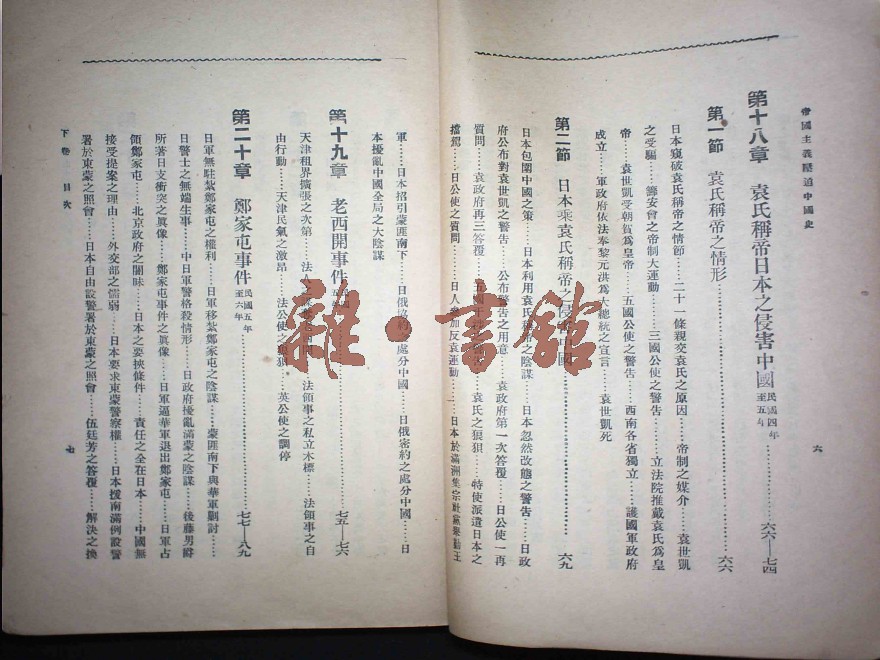 帝國主義壓迫中國史
第十八章 袁氏稱帝日本之侵害中國 民國四年至五年……六六—七四
第一節 袁氏稱帝之情形……六六
日本窺破袁氏稱帝之情節……二十一條親交袁氏之原因……帝制之媒介……袁世凱
之受騙……籌安會之帝制大運動……三國公使之警告……立法院推戴袁氏爲皇
帝……袁世凱受朝賀爲皇帝……五國公使之警告……西南各省獨立……護國軍政府
成立……軍政府依法奉黎元洪爲大總統之宣言……袁世凱死
第二節 日本乘袁氏稱帝之侵害中國……六九
日本包圍中國之策……日本利用袁氏稱帝之陰謀……日本忽然改態之警告……日政
府公布對袁世凱之警告……公布警告之用意……袁政府第一次答覆……日公使一再
質問……袁政府再三答覆……五國……袁氏之狼狽……特使派遣日本之
擋駕……日公使之質問……日人參加反袁運動……日本於滿洲集宗社黨舉勤王
六
軍……日本招引蒙匪南下……日俄協約之處分中國……日俄密約之處分中國……日
本擾亂中國全局之大陰謀
第十九章 老西開事件……七五—七六
天津租界擴張之次第……法人……法領事之私立木標……法領事之自
由行動……天津民氣之激昂……法公使之狼狽……英公使之調停
第二十章 鄭家屯事件 民國五年至六年……七七—八九
日軍無駐紮鄭家屯之權利……日軍移紮鄭家屯之陰謀……蒙匪南下與華軍剿討……
日警士之無端生事……中日軍警格殺情形……日政府擾亂滿蒙之陰謀……後藤男爵
所著日支衝突之眞像……鄭家屯事件之眞像……日軍逼華軍退出鄭家屯……日軍占
領鄭家屯……北京政府之闇昧……日本之要挾條件……責任之全在日本……中國無
接受提案之理由……外交部之懦弱……日本要求東蒙警察權……日本援南滿例設警
署於東蒙之照會……日本自由設警署於東蒙之照會……伍廷芳之答覆……解決之換
下卷 目次
七
雜·書館